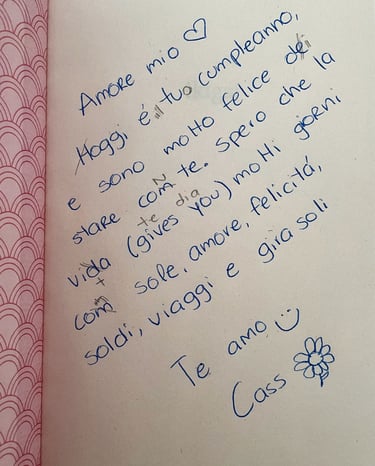 Amore mio ♡
Hoggi é il tuo cumpleanno,
e sono molto felice di
stare com te. Spero che la
N
te dia
vida (gives you) molti giorni
t
com sole, amore, felicitá,
soldi, viaggi e girasoli
Te amo :)
Cass